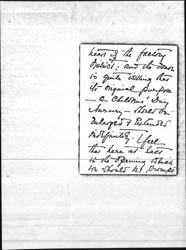 heart of the factory
District; and the owner
is quite willing that
its original purpose
— a Children's Day
Nursery — shall be
Enlarged & Extended
indefinitely. I feel
that here at last
is the opening which
we should all